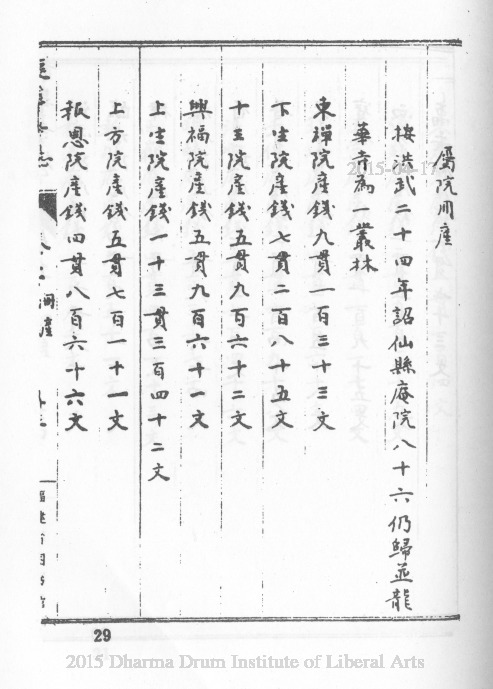 廢院田產
按洪武二十四年詔仙縣庵院八十六仍歸並龍
華寺為一叢林
東禪院產錢九貫一百三十三文
下生院產錢七貫二百八十五文
十王院產錢五貫九百六十二文
興福院產錢五貫九百六十一文
上生院產錢一十三貫三百四十二文
上方院產錢五貫七百一十一文
報恩院產錢四貫八百六十六文
29
2015-04-17
2015 Dharma Drum Institute of Liberal Arts